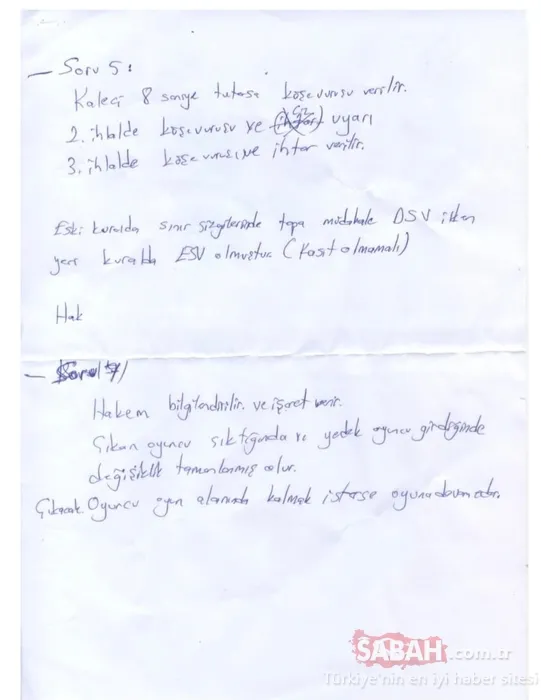 — Soru 5:
Kaleci 8 saniye tutarsa köşe vuruşu verilir.
2. ihlalde köşe vuruşu ve uyarı
3. ihlalde köşe vuruşu ve ihtar verilir.
Eski kuralda sınır çizgilerinde topa müdahale DSV iken
yeni kuralda ESV olmuştur (Kasıt olmamalı)
Hak
— Soru 7/
Hakem bilgilendirilir. ve işaret verir.
Çıkan oyuncu çıktığında ve yedek oyuncu girdiğinde
değişiklik tamamlanmış olur.
Çıkacak Oyuncu oyun alanında kalmak isterse oyuna devam eder.
SABAH.com.tr
Türkiye'nin en iyi haber sitesi